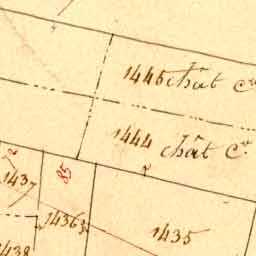 1445 chât cu
1444 chât Cu
1437
85
1436
1435
1438